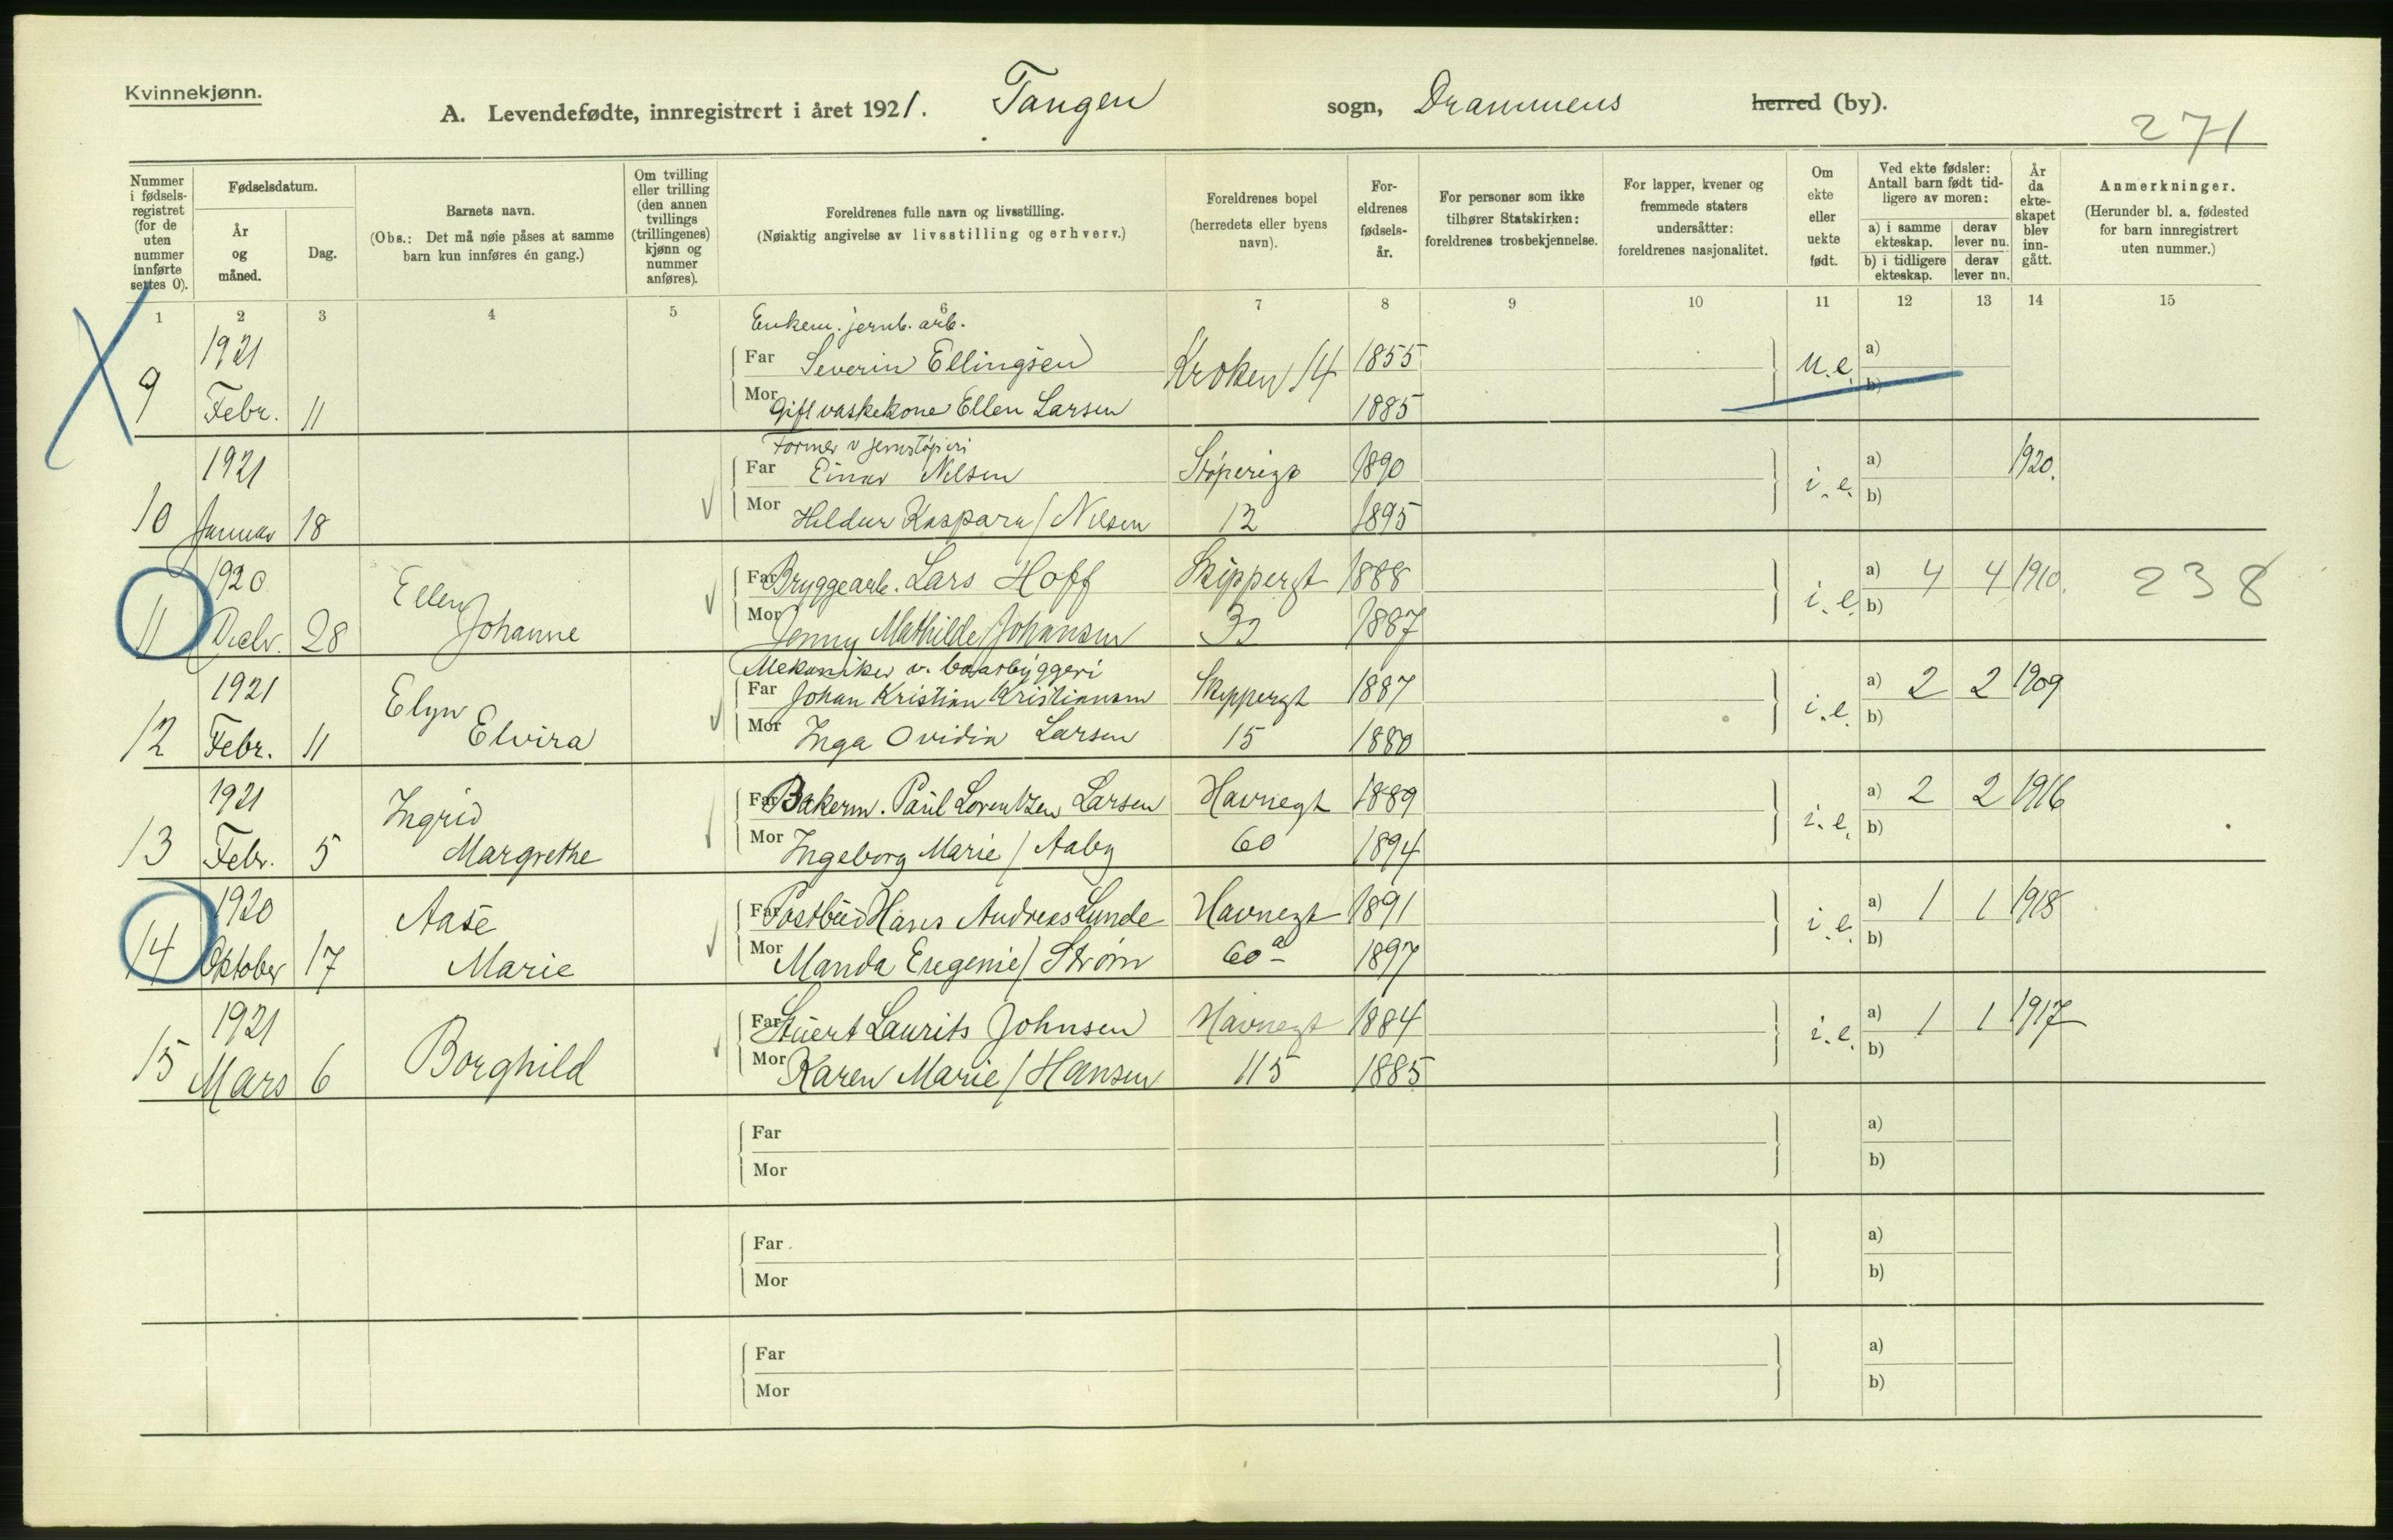 Kvinnekjønn.
A. Levendefødte, innregistrert i året 1921. Tangen sogn, Drammens herred (by).
271
Nummer i fødselsregistret (for de uten nummer innførte settes 0).
Fødselsdatum.
År og måned.
Dag.
Barnets navn.
(Obs.: Det må nøie påses at samme barn kun innføres én gang.)
Om tvilling eller trilling (den annen tvillings (trillingenes) kjønn og nummer anføres).
Foreldrenes fulle navn og livsstilling.
(Nøiaktig angivelse av livsstilling og erhverv.)
Foreldrenes bopel (herredets eller byens navn).
Foreldrenes fødselsår.
For personer som ikke tilhører Statskirken: foreldrenes trosbekjennelse.
For lapper, kvener og fremmede staters undersåtter: foreldrenes nasjonalitet.
Om ekte eller uekte født.
Ved ekte fødsler: Antall barn født tidligere av moren:
a) i samme ekteskap. derav lever nu.
b) i tidligere ekteskap. derav lever nu.
År da ekteskapet blev inngått.
Anmerkninger.
(Herunder bl. a. fødested for barn innregistrert uten nummer.)
1 2 3 4 5 6 7 8 9 10 11 12 13 14 15
Enkem. jernb. arb.
1921 Far Severin Ellingsen Kroken 14 1855 u.e. a)
9 Febr. 11 Mor Gift vaskekone Ellen Larsen 1885 b)
Former v jernstøperi
1921 Far Einar Nilsen Støperigt 1890 i.e. a) 1920.
10 Januar 18 Mor Hildur Kaspara / Nilsen 12 1895 b)
1920 Ellen Far Bryggearb. Lars Hoff Skippergt 1888 i.e. a) 4 4 1910. 238
11 Decbr. 28 Johanne Mor Jenny Mathilde / Johansen 1887 b)
Mekaniker v. baatbyggeri
1921 Elyn Far Johan Kristian Kristiansen Skippergt 1887 i.e. a) 2 2 1909
12 Febr. 11 Elvira Mor Inga Ovidia Larsen 15 1880 b)
1921 Ingrid Far Bakerm. Paul Lorentzen Larsen Havnegt 1889 i.e. a) 2 2 1916
13 Febr. 5 Margrethe Mor Ingeborg Marie / Aaby 60 1894 b)
1920 Aase Far Postbud Hans Andreas Lunde Havnegt 1891 i.e. a) 1 1 1918
14 Oktober 17 Marie Mor Manda Eugenie / Strøm 60a 1897 b)
1921 Borghild Far Stuert Laurits Johnsen Havnegt 1884 i.e. a) 1 1 1917
15 Mars 6 Mor Karen Marie / Hansen 115 1885 b)
Far a)
Mor b)
Far a)
Mor b)
Far a)
Mor b)